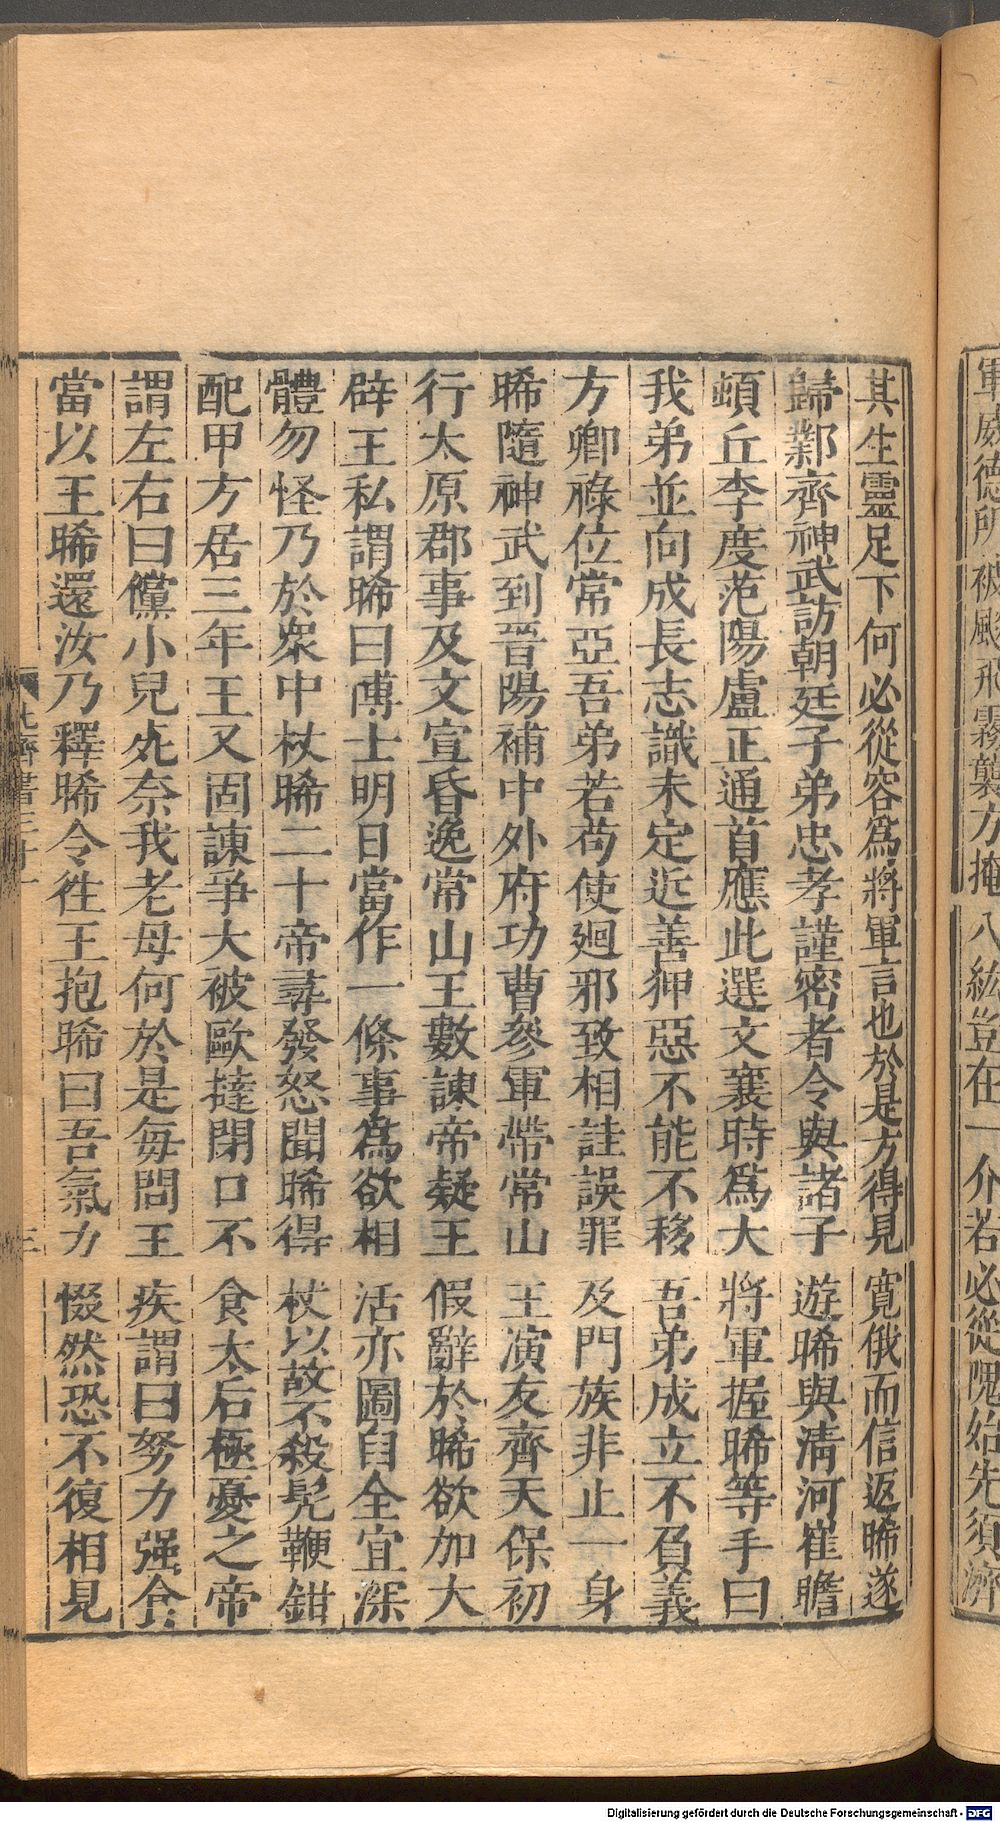 軍威德所被飈飛霧襲方掩八紘豈在一介若必從隗始先須濟
其生靈足下何必從容爲將軍言也於是方得見寛俄而信返晞遂
歸鄴齊神武訪朝廷子弟忠孝謹密者令與諸子遊晞與清河崔瞻
頓丘李度范陽盧正通首應此選文襄時爲大將軍握晞等手曰
我弟並向成長志識未定近善狎惡不能不移吾弟成立不負義
方卿祿位常亞吾弟若苟使廻邪致相詿誤罪及門族非止一身
晞隨神武到晉陽補中外府功曹參軍帶常山王演友齊天保初
行太原郡事及文宣昏逸常山王數諫帝疑王假辭於晞欲加大
辟王私謂晞曰博士明日當作一條事爲欲相活亦圖自全宜深
體勿怪乃於衆中杖晞二十帝尋發怒聞晞得杖以故不殺髡鞭鉗
配甲方居三年王又固諫爭大被歐撻閉口不食太后極憂之帝
謂左右曰儻小兒死奈我老母何於是每問王疾謂曰努力强食
當以王晞還汝乃釋晞令徃王抱晞曰吾氣力惙然恐不復相見
北齊書三十一
三
Digitalisierung gefördert durch die Deutsche Forschungsgemeinschaft - DFG